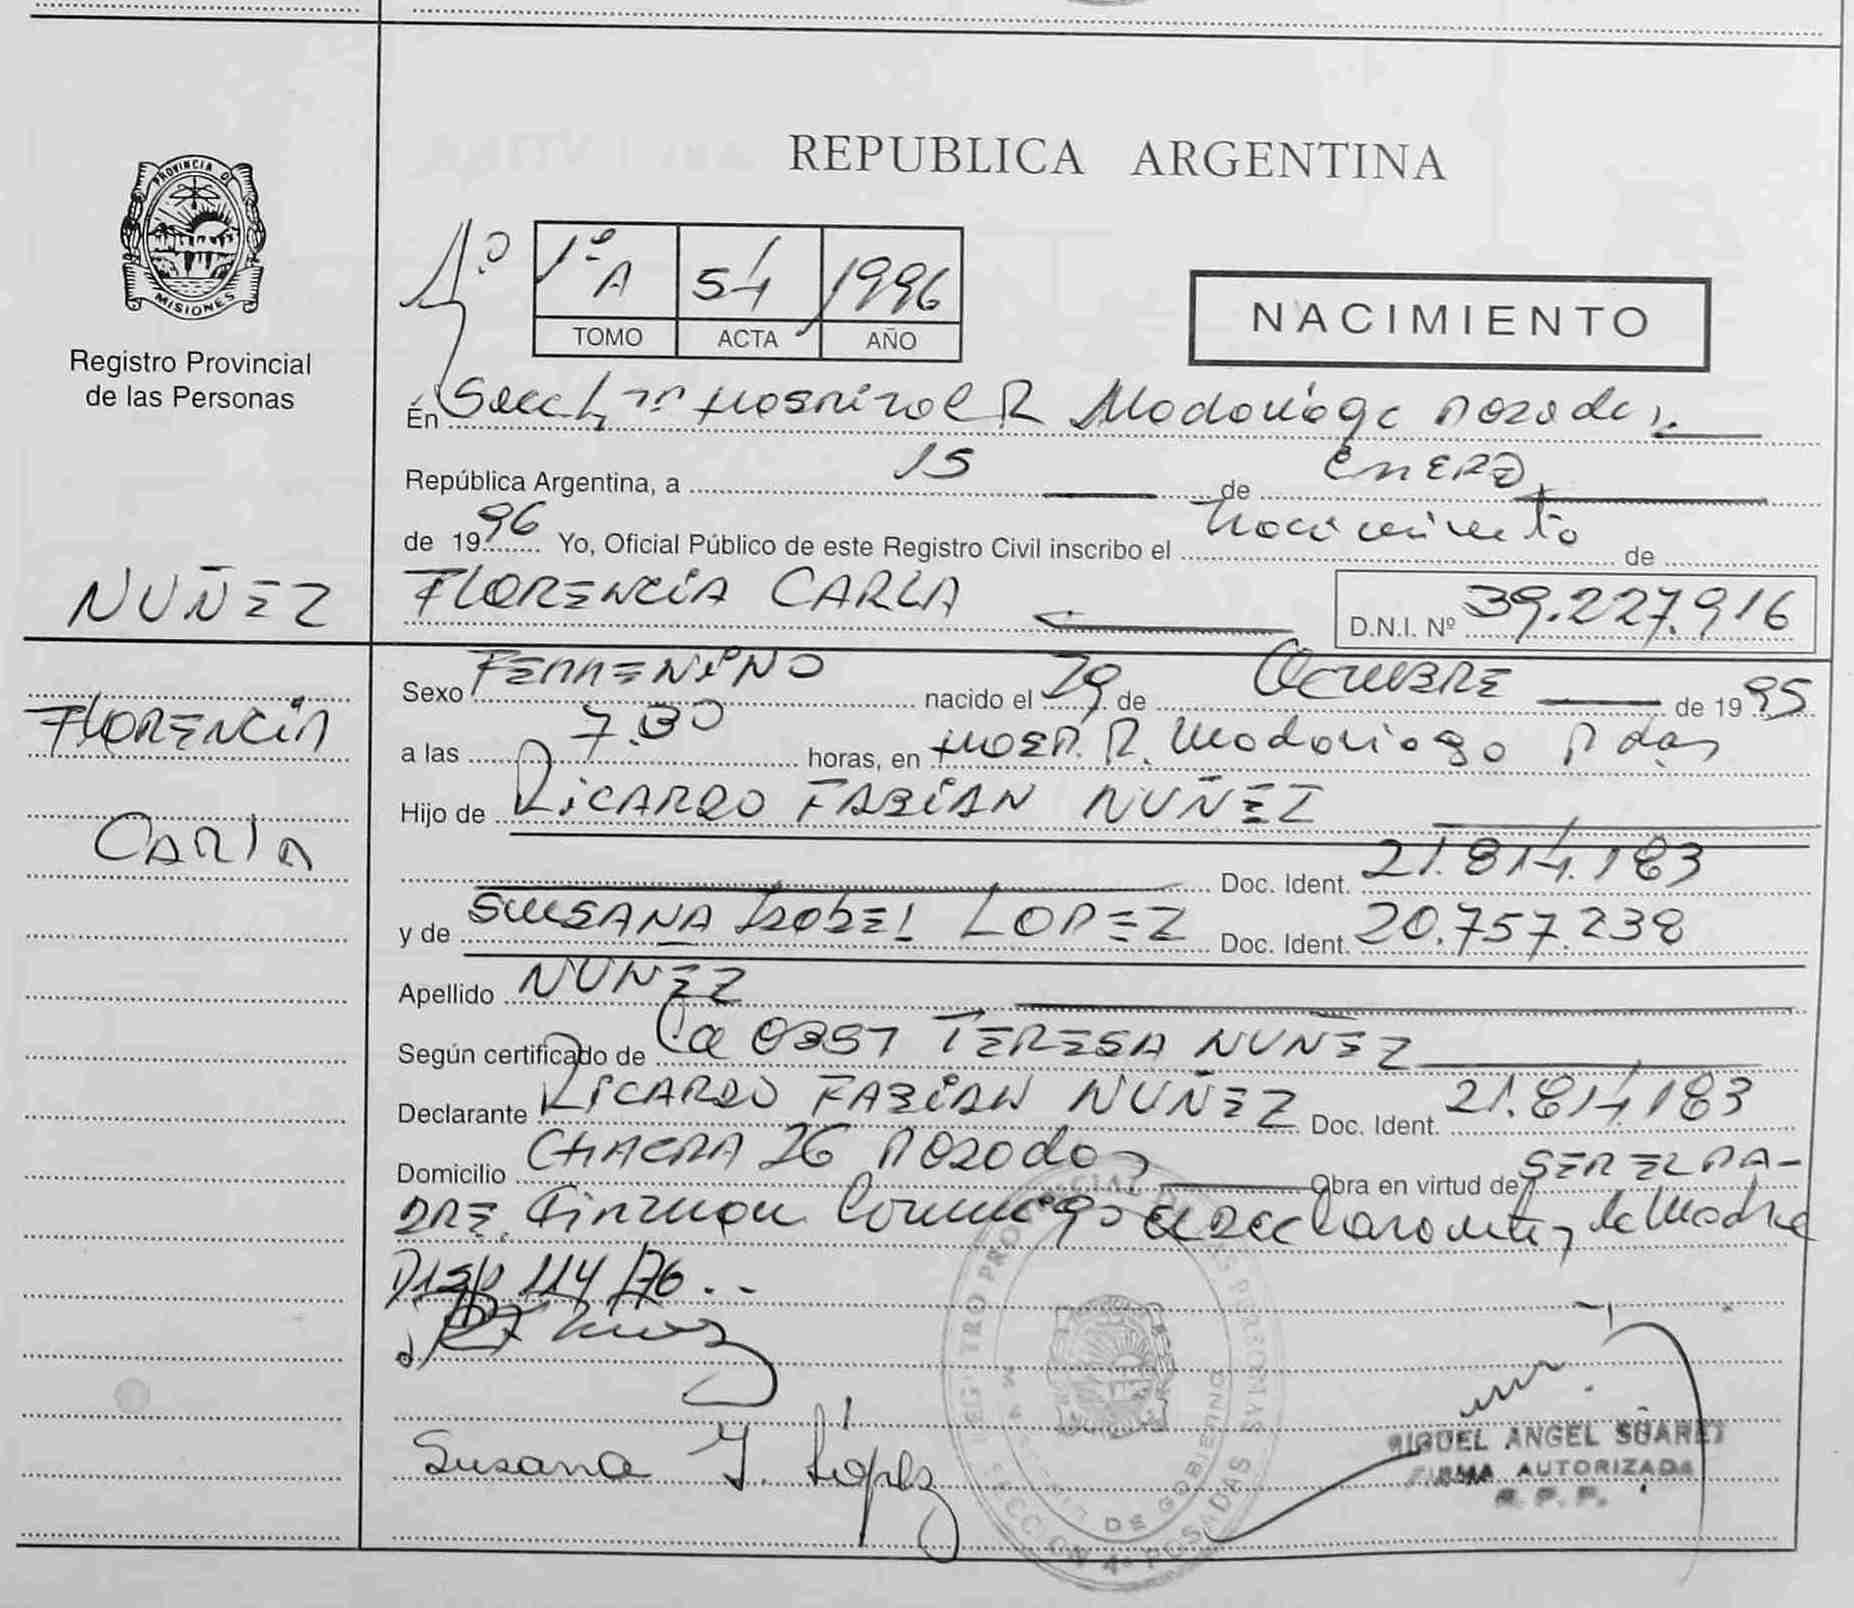 REPUBLICA ARGENTINA
PROVINCIA DE
MISIONES
Registro Provincial
de las Personas
1º
1º A 54 1996
TOMO ACTA AÑO
NACIMIENTO
En Secc Hospital R Madariaga Posadas
República Argentina, a 15 de ENERO
de 1996 Yo, Oficial Público de este Registro Civil inscribo el Nacimiento de
NUÑEZ
FLORENCIA CARLA
D.N.I. Nº 39.227.916
FLORENCIA
CARLA
Sexo FEMENINO nacido el 29 de OCTUBRE de 1995
a las 7.30 horas, en Hosp. R. Madariaga Pdas
Hijo de RICARDO FABIAN NUÑEZ
Doc. Ident. 21.814.183
y de SUSANA ISABEL LOPEZ Doc. Ident. 20.757.238
Apellido NUÑEZ
Según certificado de La OBST TERESA NUÑEZ
Declarante RICARDO FABIAN NUÑEZ Doc. Ident. 21.814.183
Domicilio CHACRA 26 Posadas Obra en virtud de SER EL PA-
DRE. Firman Conmigo el Declarante y la Madre
Disp. 114/76.--
Susana I. López
MIGUEL ANGEL SUAREZ
FIRMA AUTORIZADA
R. P. P.
SECCION 4ª POSADAS
DE GOBIERNO